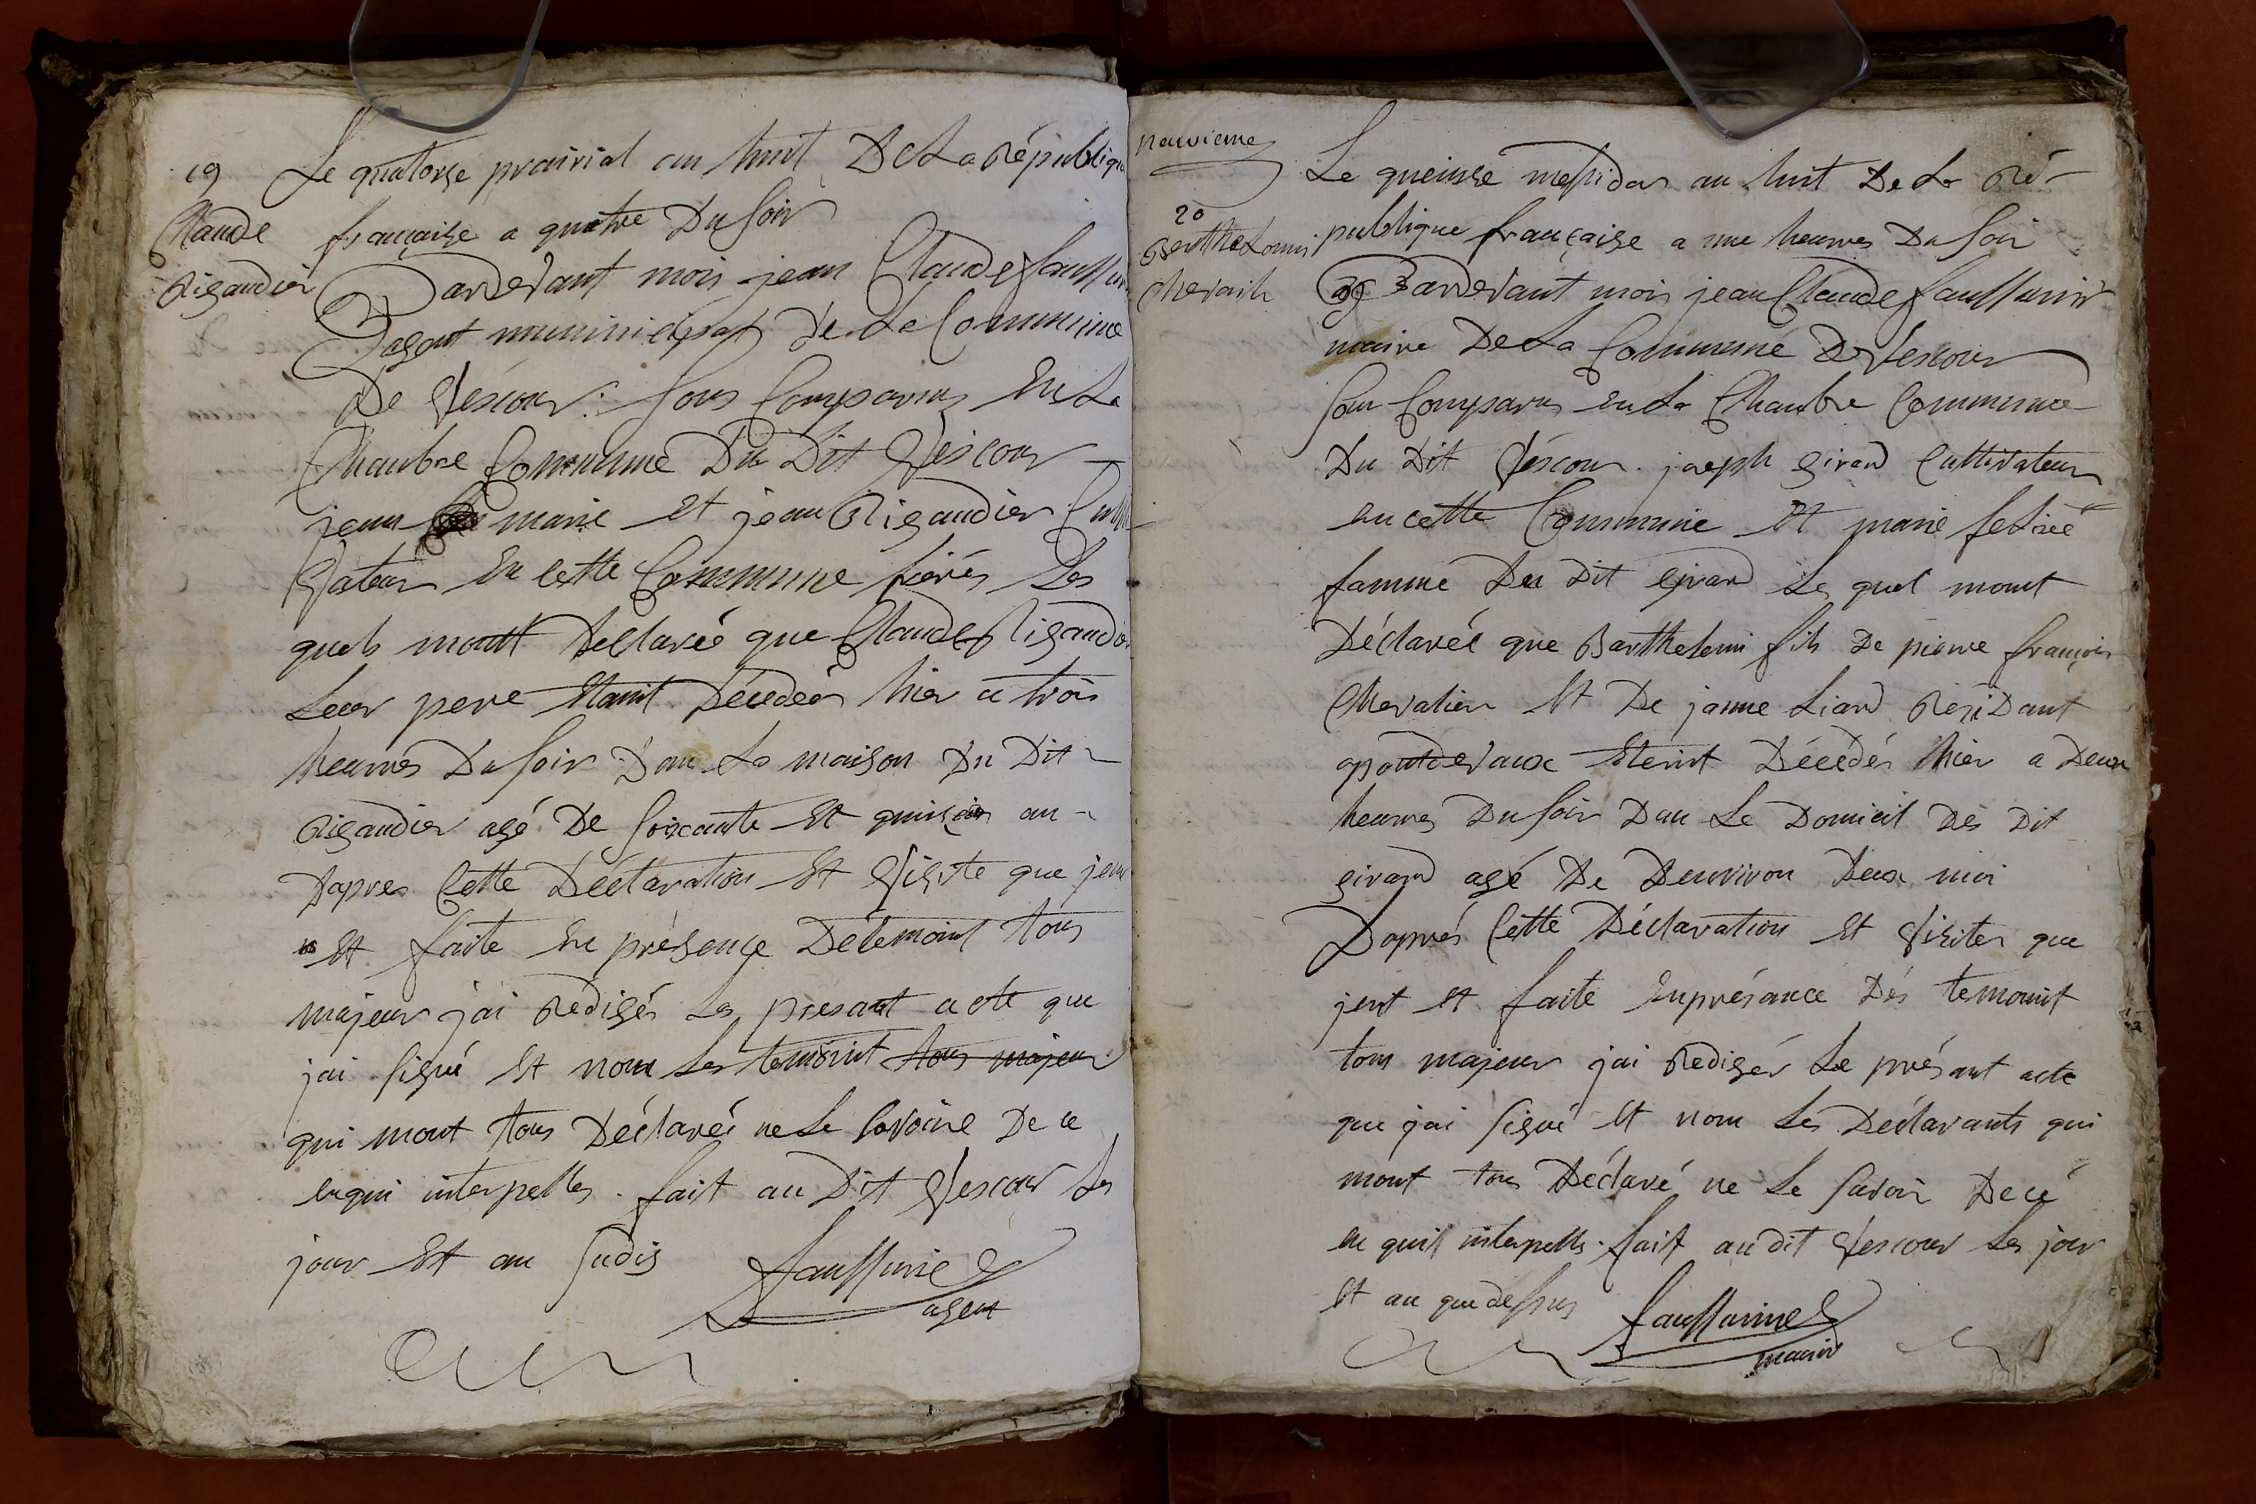 19
Claude
Rigaudier
Le quatorze prairial an huit De La République
française a quatre Du soir
Pardevant mois jean Claude faussurier
L'agent municipal De La Commune
De Vescour. sons Comparus En La
Chambre Commune Du Dit Vescour
jean marie Et jean Rigaudier Culti
Vateur En Cette Commune frerés Les
quels mont Declareé que Claude Rigaudier
Leur pere Etant Décédéés hier a trois
heures Du soir Dan La maison Du Dit
Rigaudier agé De soixante Et quinse an
Dapres Cette Déclaration Et Visite que jeut
Et faite En présençe Détemoint tous
majeur jai Rédigés Le presant acte que
jai signé Et nom Les temoint tous majeur
qui mont tous Déclareé ne Le savoire De ce
enqui interpelles. fait au Dit Vescour Les
jour Et an sudis
faussurier
agent
neuvieme
20
Barthelomi
Chevailr
Le queinse messidor an huit De La Ré-
publique française a une heures Du soir
Pardevant mois jean Claude faussurier
maire De La Commune De Vescour
son Comparus En La Chambre Commune
Du Dit Vescour. joseph Girard Cultivateur
en cette Commune Et marie
famme Du Dit Girard Le quel mont
Déclareé que Barthelemi fils De pierre françois
Chevalier Et De janne Liard Résidant
apontdevaux Etent Décédés hier a Deux
heures Du soir Dan Le Domicil Dés Dit
girard agé De Denviron Deux moi
Daprés Cette Déclaration Et Visiter que
jent Et faite Enprésance Dés temoint
tous majeur jai Redigér Le présant acte
que jai signé Et nom Les Déclarants qui
mont tous Déclaré ne Le savoir De cé
en quit interpelle. fait au dit Vescour Les jour
Et an que dessus
faussurier
mairie